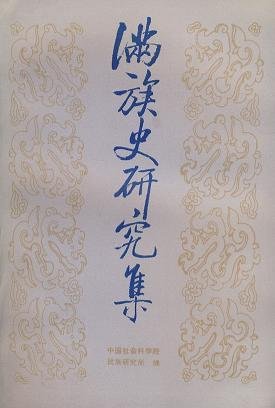 满族史研究集
中国社会科学院
民族研究所 编